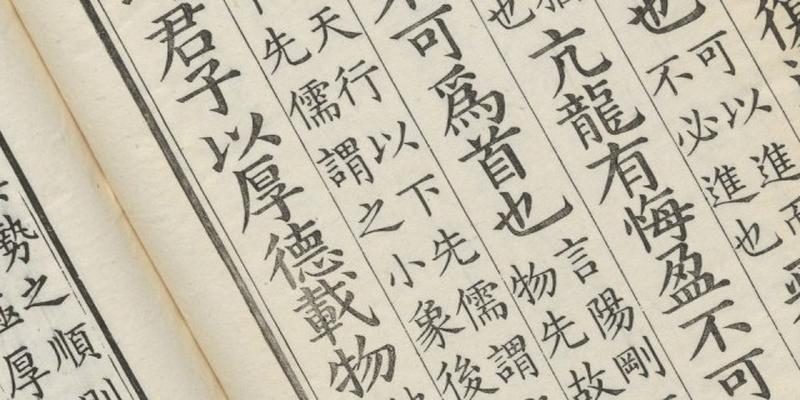 也
可以進
不必進也
也
亢龍有悔盈不可
可爲首也
言陽剛
物先故
天行以下先儒謂
先儒謂之小象後
君子以厚德載物
勢之順
厚